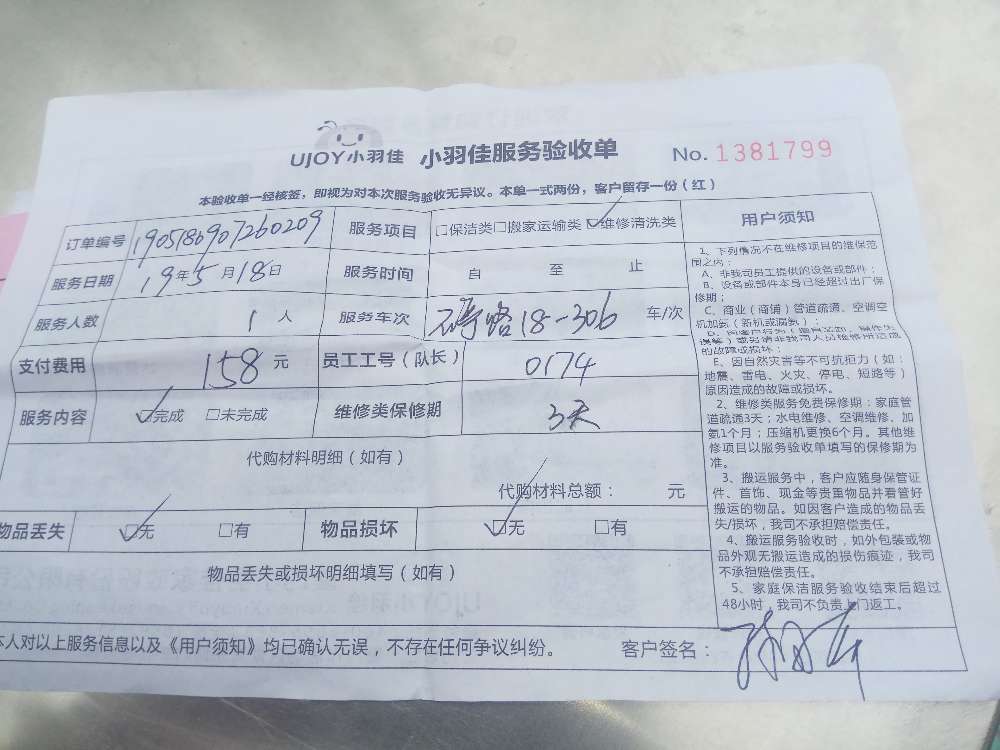 UJOY小羽佳 小羽佳服务验收单 No. 1381799
本验收单一经核签，即视为对本次服务验收无异议。本单一式两份，客户留存一份（红）
订单编号 1905186907260209 服务项目 □保洁类□搬家运输类☑维修清洗类
服务日期 19年5月18日 服务时间 自 至 止
服务人数 1人 服务车次 18-306 车/次
支付费用 158元 员工工号（队长） 0174
服务内容 ☑完成 □未完成 维修类保修期 3天
代购材料明细（如有）
代购材料总额： 元
物品丢失 ☑无 □有 物品损坏 ☑无 □有
物品丢失或损坏明细填写（如有）
本人对以上服务信息以及《用户须知》均已确认无误，不存在任何争议纠纷。 客户签名：
用户须知
1、下列情况不在维修项目的维保范
围之内：
A、非我司员工提供的设备或部件；
B、设备或部件本身已经超过出厂保
修期；
C、商业（商铺）管道疏通、空调空
机加氨（新机或漏氨）；
的故障或损坏；
E、因自然灾害等不可抗拒力（如：
地震、雷电、火灾、停电、短路等）
原因造成的故障或损坏。
2、维修类服务免费保修期：家庭管
道疏通3天；水电维修、空调维修、加
氨1个月；压缩机更换6个月。其他维
修项目以服务验收单填写的保修期为
准。
3、搬运服务中，客户应随身保管证
件、首饰、现金等贵重物品并看管好
搬运的物品。如因客户造成的物品丢
失/损坏，我司不承担赔偿责任。
4、搬运服务验收时，如外包装或物
品外观无搬运造成的损伤痕迹，我司
不承担赔偿责任。
5、家庭保洁服务验收结束后超过
48小时，我司不负责上门返工。